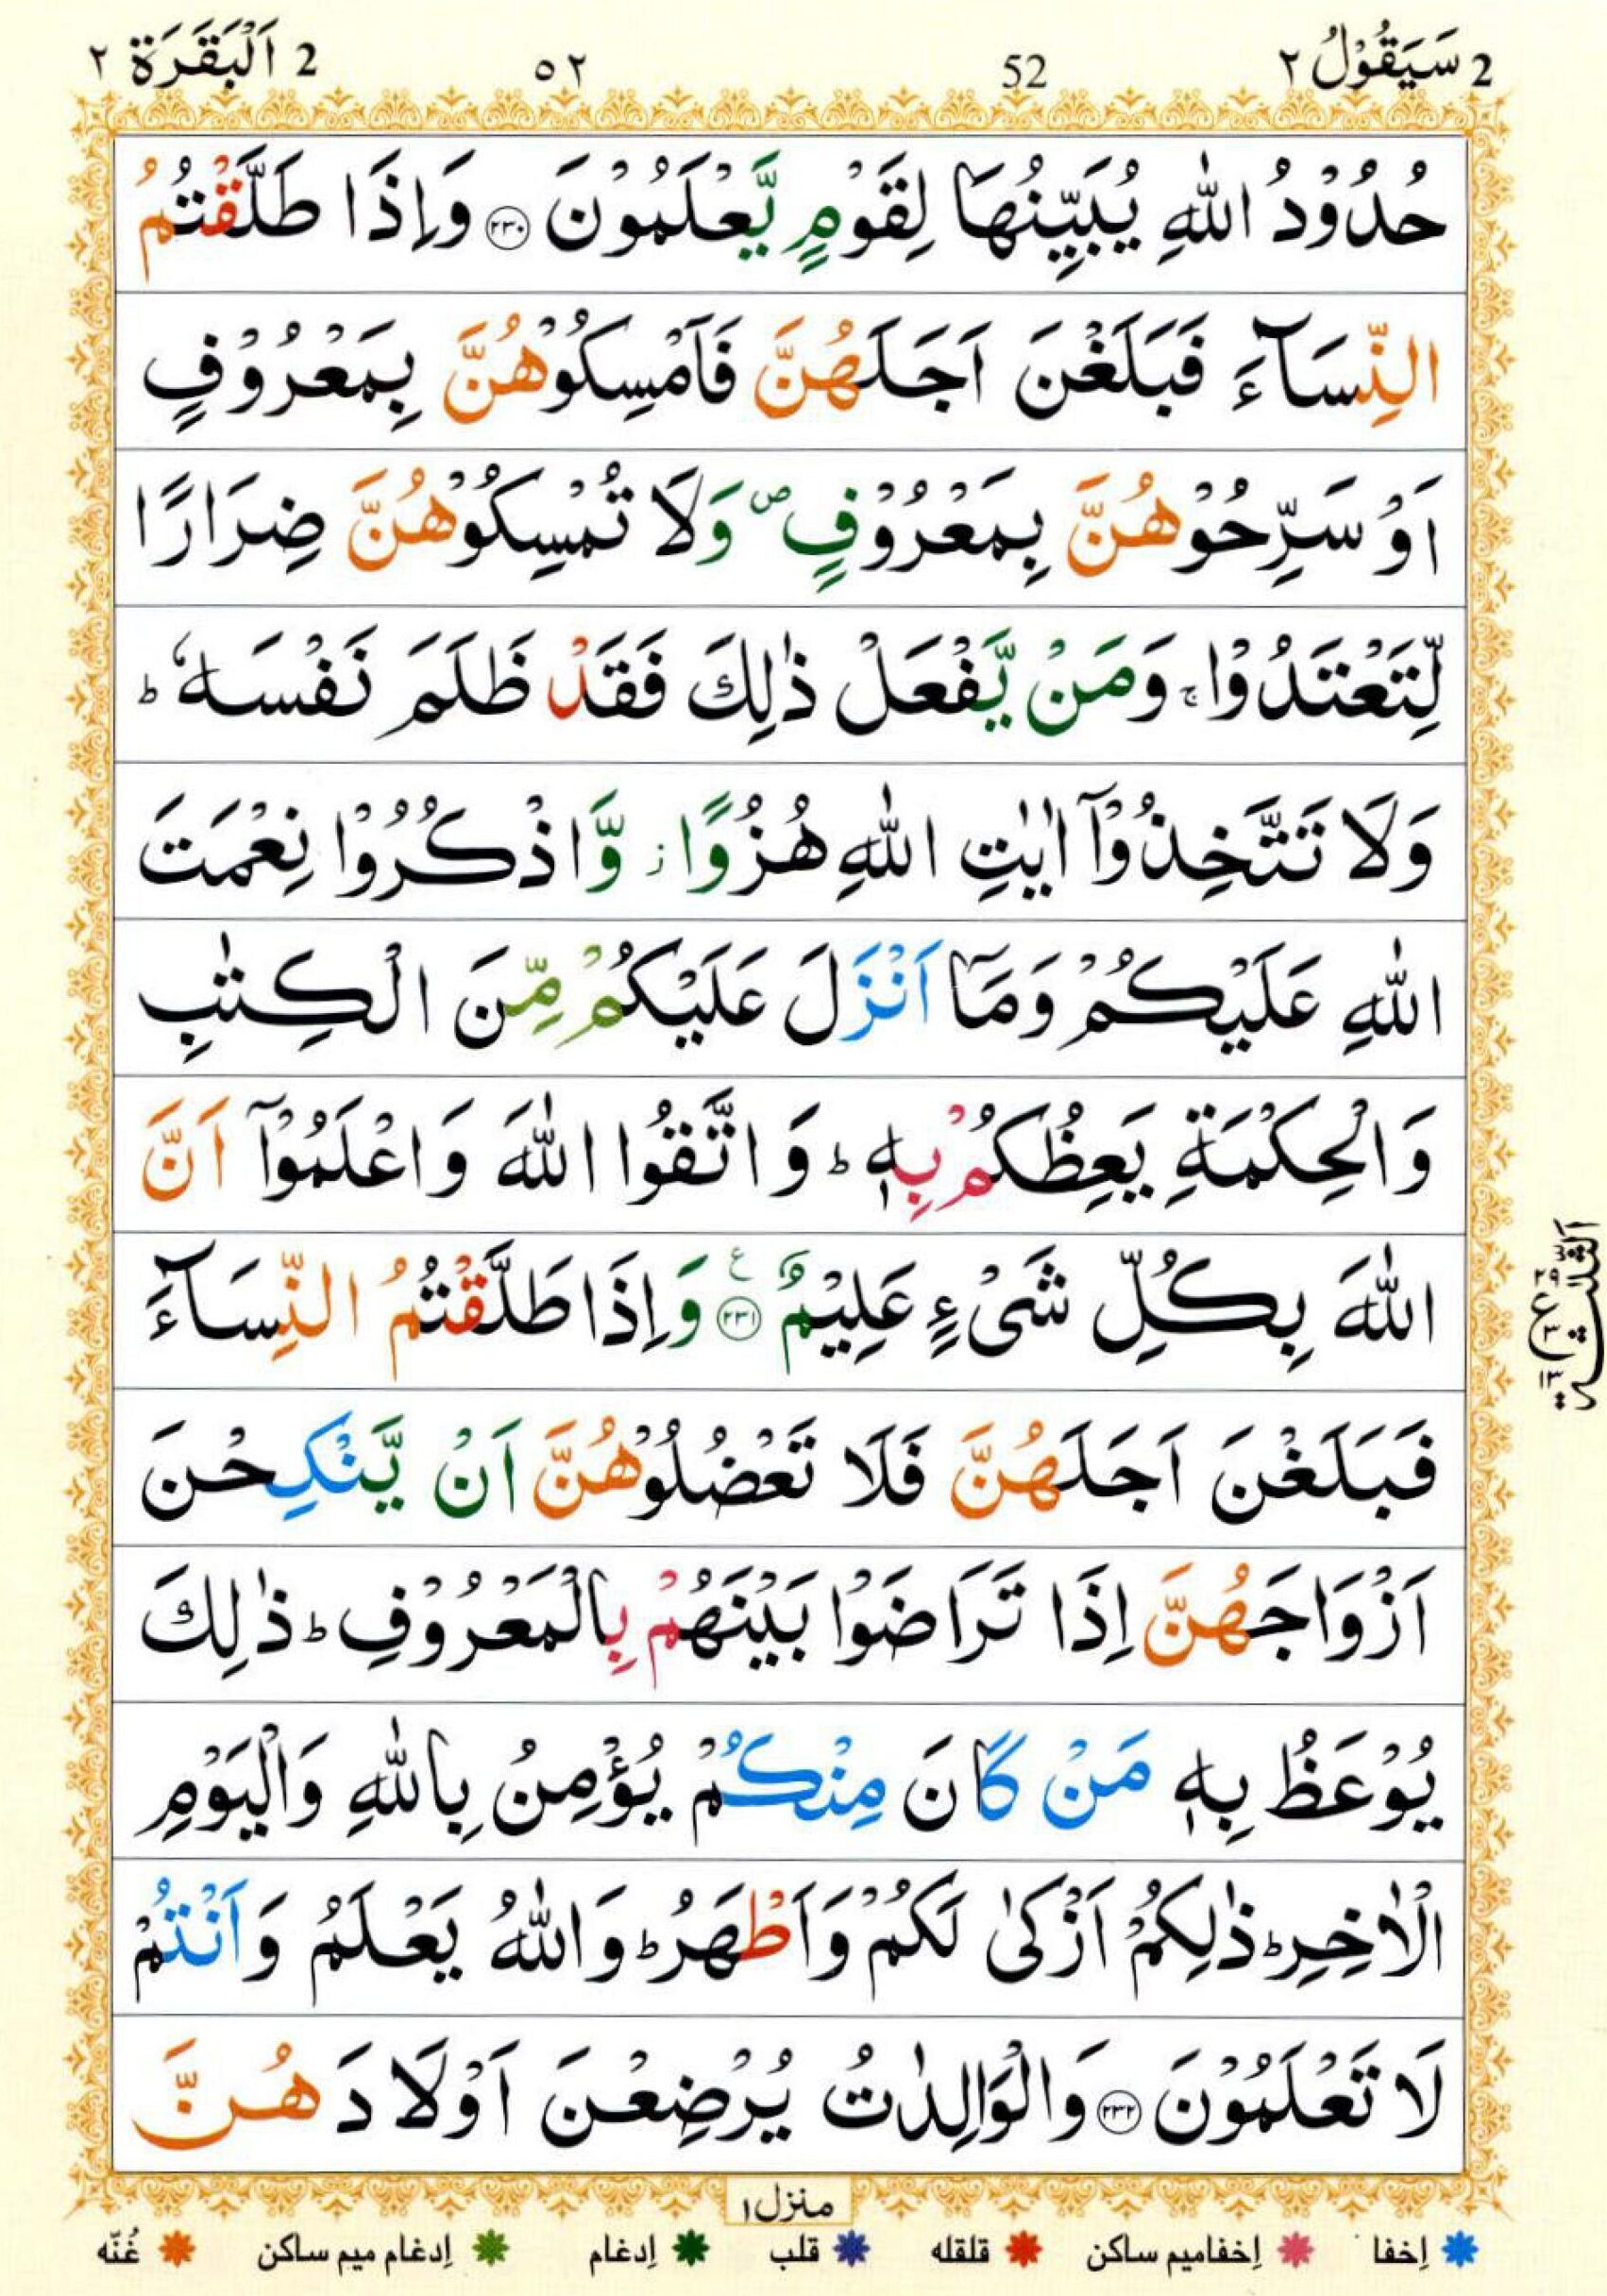 2 سَيَقُوْلُ ٢ 52 ٥٢ 2 اَلْبَقَرَة ٢
حُدُوْدُ اللّٰهِ يُبَيِّنُهَا لِقَوْمٍ يَّعْلَمُوْنَ ۝٢٣٠ وَاِذَا طَلَّقْتُمُ
النِّسَآءَ فَبَلَغْنَ اَجَلَهُنَّ فَاَمْسِكُوْهُنَّ بِمَعْرُوْفٍ
اَوْ سَرِّحُوْهُنَّ بِمَعْرُوْفٍ ۪ وَلَا تُمْسِكُوْهُنَّ ضِرَارًا
لِّتَعْتَدُوْا ۚ وَمَنْ يَّفْعَلْ ذٰلِكَ فَقَدْ ظَلَمَ نَفْسَهٗ ؕ
وَلَا تَتَّخِذُوْٓا اٰيٰتِ اللّٰهِ هُزُوًا ؗ وَّاذْكُرُوْا نِعْمَتَ
اللّٰهِ عَلَيْكُمْ وَمَآ اَنْزَلَ عَلَيْكُمْ مِّنَ الْكِتٰبِ
وَالْحِكْمَةِ يَعِظُكُمْ بِهٖ ؕ وَاتَّقُوا اللّٰهَ وَاعْلَمُوْٓا اَنَّ
اللّٰهَ بِكُلِّ شَیْءٍ عَلِيْمٌ ۝٢٣١ ع وَاِذَا طَلَّقْتُمُ النِّسَآءَ
فَبَلَغْنَ اَجَلَهُنَّ فَلَا تَعْضُلُوْهُنَّ اَنْ يَّنْكِحْنَ
اَزْوَاجَهُنَّ اِذَا تَرَاضَوْا بَيْنَهُمْ بِالْمَعْرُوْفِ ؕ ذٰلِكَ
يُوْعَظُ بِهٖ مَنْ كَانَ مِنْكُمْ يُؤْمِنُ بِاللّٰهِ وَالْيَوْمِ
الْاٰخِرِ ؕ ذٰلِكُمْ اَزْكٰى لَكُمْ وَاَطْهَرُ ؕ وَاللّٰهُ يَعْلَمُ وَاَنْتُمْ
لَا تَعْلَمُوْنَ ۝٢٣٢ وَالْوَالِدٰتُ يُرْضِعْنَ اَوْلَادَهُنَّ
اَلثَّلٰثَة
ع
منزل ١
اِخفا اِخفامیم ساكن قلقله قلب اِدغام اِدغام میم ساكن غُنّه